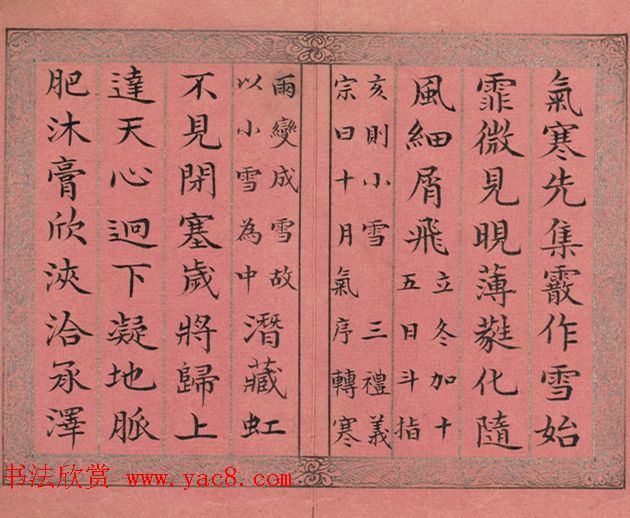 氣寒先集霰作雪始
霏微見晛薄化隨
風細屑飛立冬加十
五日斗指
亥則小雪 三禮義
宗曰十月氣序轉寒
雨變成雪故
以小雪為中
潛藏虹
不見閉塞歲將歸上
達天心迴下凝地脈
肥沐膏欣浹洽承澤
书法欣赏 www.yac8.com